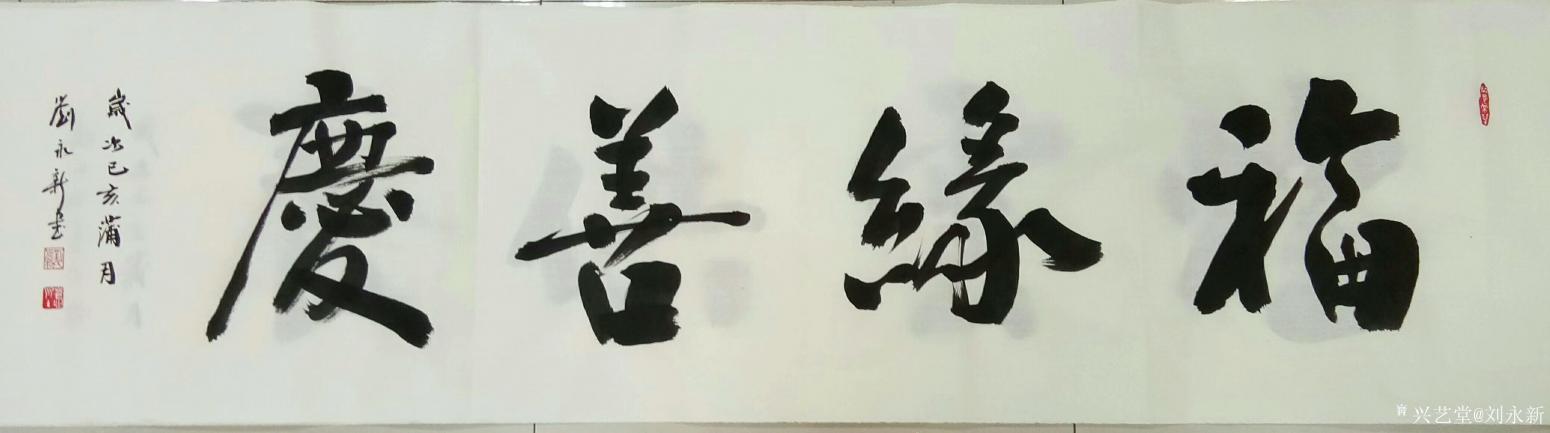 福緣善慶
歲次己亥蒲月
劉永新書
兴艺堂@刘永新